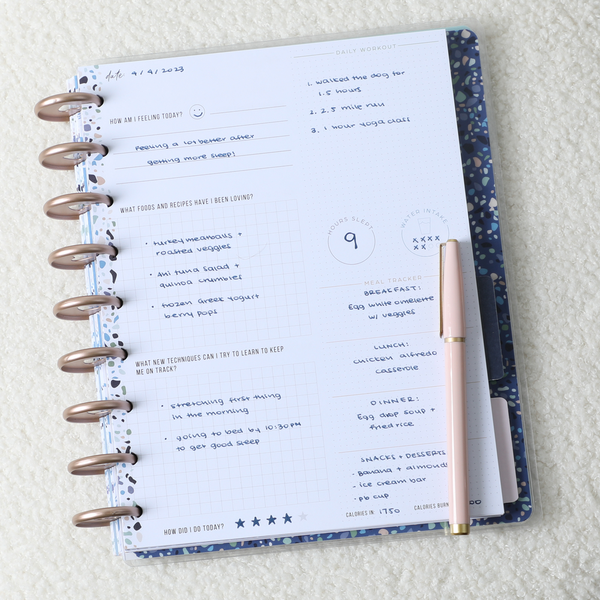 date 4/4/2023
HOW AM I FEELING TODAY?
Feeling a lot better after
getting more sleep!
WHAT FOODS AND RECIPES HAVE I BEEN LOVING?
• turkey meatballs +
roasted veggies
• ahi tuna salad +
quinoa crumbles
• frozen greek yogurt
berry pops
WHAT NEW TECHNIQUES CAN I TRY TO LEARN TO KEEP
ME ON TRACK?
• stretching first thing
in the morning
• going to bed by 10:30PM
to get good sleep
HOW DID I DO TODAY?
DAILY WORKOUT
1. walked the dog for
1.5 hours
2. 2.5 mile run
3. 1 hour yoga class
HOURS SLEPT
9
WATER INTAKE
XXXX
XX
MEAL TRACKER
BREAKFAST:
Egg white omelette
w/ veggies
LUNCH:
chicken alfredo
casserole
DINNER:
Egg drop soup +
fried rice
SNACKS + DESSERTS
• Banana + almond
• ice cream bar
• pb cup
CALORIES IN: 1750
CALORIES BURN